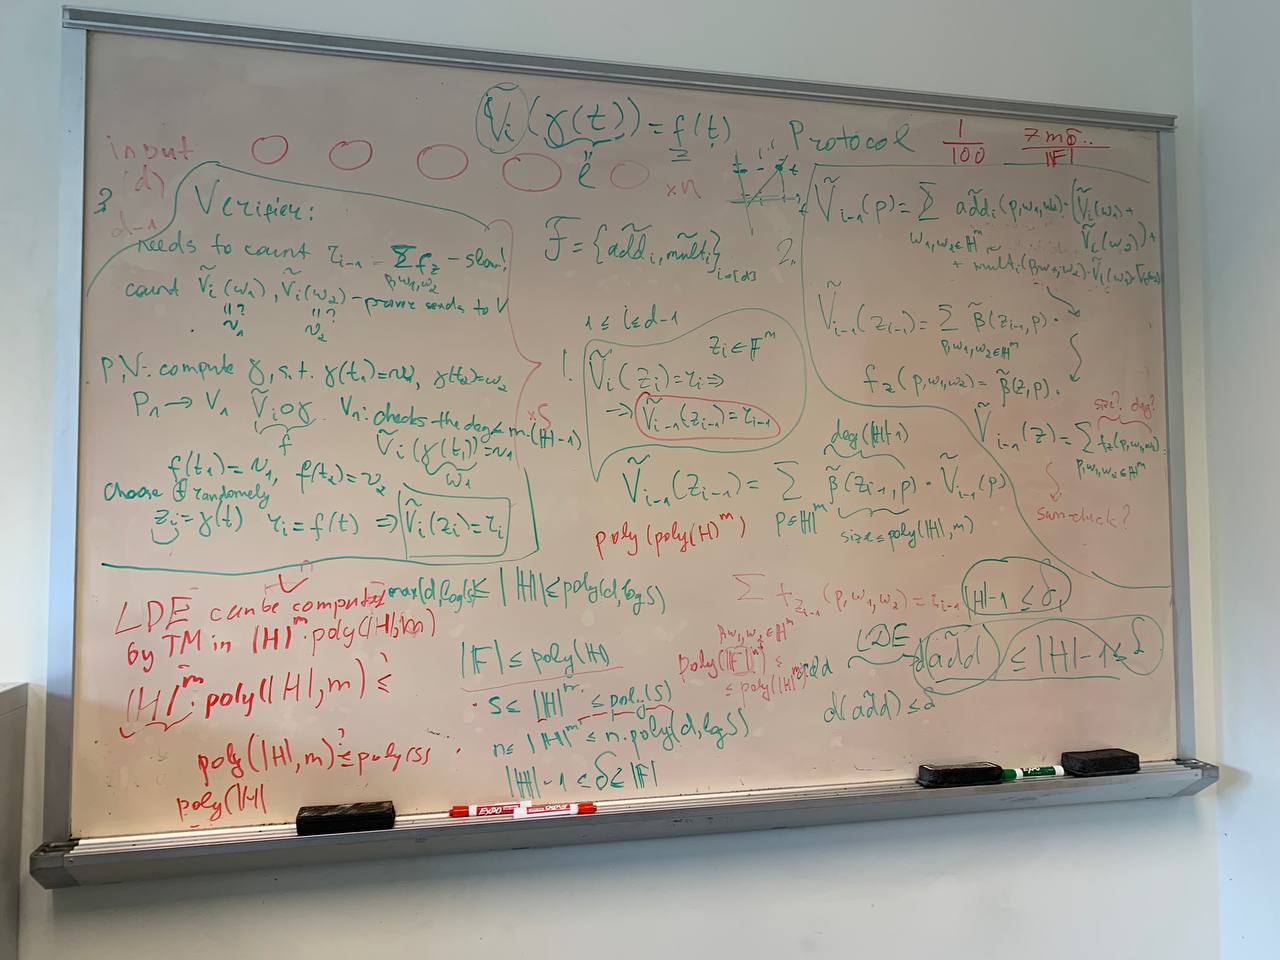 Ṽᵢ(γ(t)) = f(t)
Protocol
1/100
7mδ.. / |F|
input
(d)
d-1
×n
?
Verifier:
needs to count r_{i-1} = Σ_{p,w₁,w₂} f_z - slow!
count Ṽᵢ(w₁), Ṽᵢ(w₂) - prover sends to V
"? "?
v₁ v₂
P,V: compute γ, s.t. γ(t₁)=w₁, γ(t₂)=w₂
P₁ → V₁ Ṽᵢ∘γ V₁: checks the deg ≤ m·(|H|-1)
f
Ṽᵢ(γ(t₁)) = v₁
w₁
f(t₁) = v₁, f(t₂) = v₂
choose t randomely
zᵢ = γ(t) rᵢ = f(t) ⇒ Ṽᵢ(zᵢ) = rᵢ
×S
F = {ãddᵢ, m̃ultᵢ}_{i∈[d]}
1 ≤ i ≤ d-1
zᵢ ∈ F^m
!
Ṽᵢ(zᵢ) = rᵢ ⇒
⇒ Ṽ_{i-1}(z_{i-1}) = r_{i-1}
deg(|H|-1)
Ṽ_{i-1}(z_{i-1}) = Σ_{p∈H^m} β̃(z_{i-1},p) · Ṽ_{i-1}(p)
size ≤ poly(|H|,m)
poly(poly(H)^m)
2.
Ṽ_{i-1}(p) = Σ_{w₁,w₂∈H^m} ãddᵢ(p,w₁,w₂)·(Ṽᵢ(w₁)+
Ṽᵢ(w₂))+
+ m̃ultᵢ(p,w₁,w₂)·Ṽᵢ(w₁)·Ṽᵢ(w₂)
Ṽ_{i-1}(z_{i-1}) = Σ_{p,w₁,w₂∈H^m} β̃(z_{i-1},p)·
f_z(p,w₁,w₂) = β̃(z,p)·
size? deg?
Ṽ_{i-1}(z) = Σ_{p,w₁,w₂∈H^m} f_z(p,w₁,w₂)
sum-check?
LDE can be computed
by TM in |H|^m·poly(|H|,m)
|H|^m·poly(|H|,m) ≤
poly(|H|,m) ≤? poly(S)
poly(|H|
max(d,log(s)) ≤ |H| ≤ poly(d,logS)
|F| ≤ poly(H)
· S ≤ |H|^m ≤ poly(S)
· n ≤ |H|^m ≤ n·poly(d,logS)
|H|-1 ≤ δ ≤ |F|
Σ_{p,w₁,w₂∈H^m} f_{z_{i-1}}(p,w₁,w₂) = r_{i-1}
|H|-1 ≤ δ,
poly(|F|)^m ≤
≤ poly(|H|^m)
add
LDE
d(ãdd) ≤ |H|-1 ≤ δ
d(ãdd) ≤ δ
EXPO